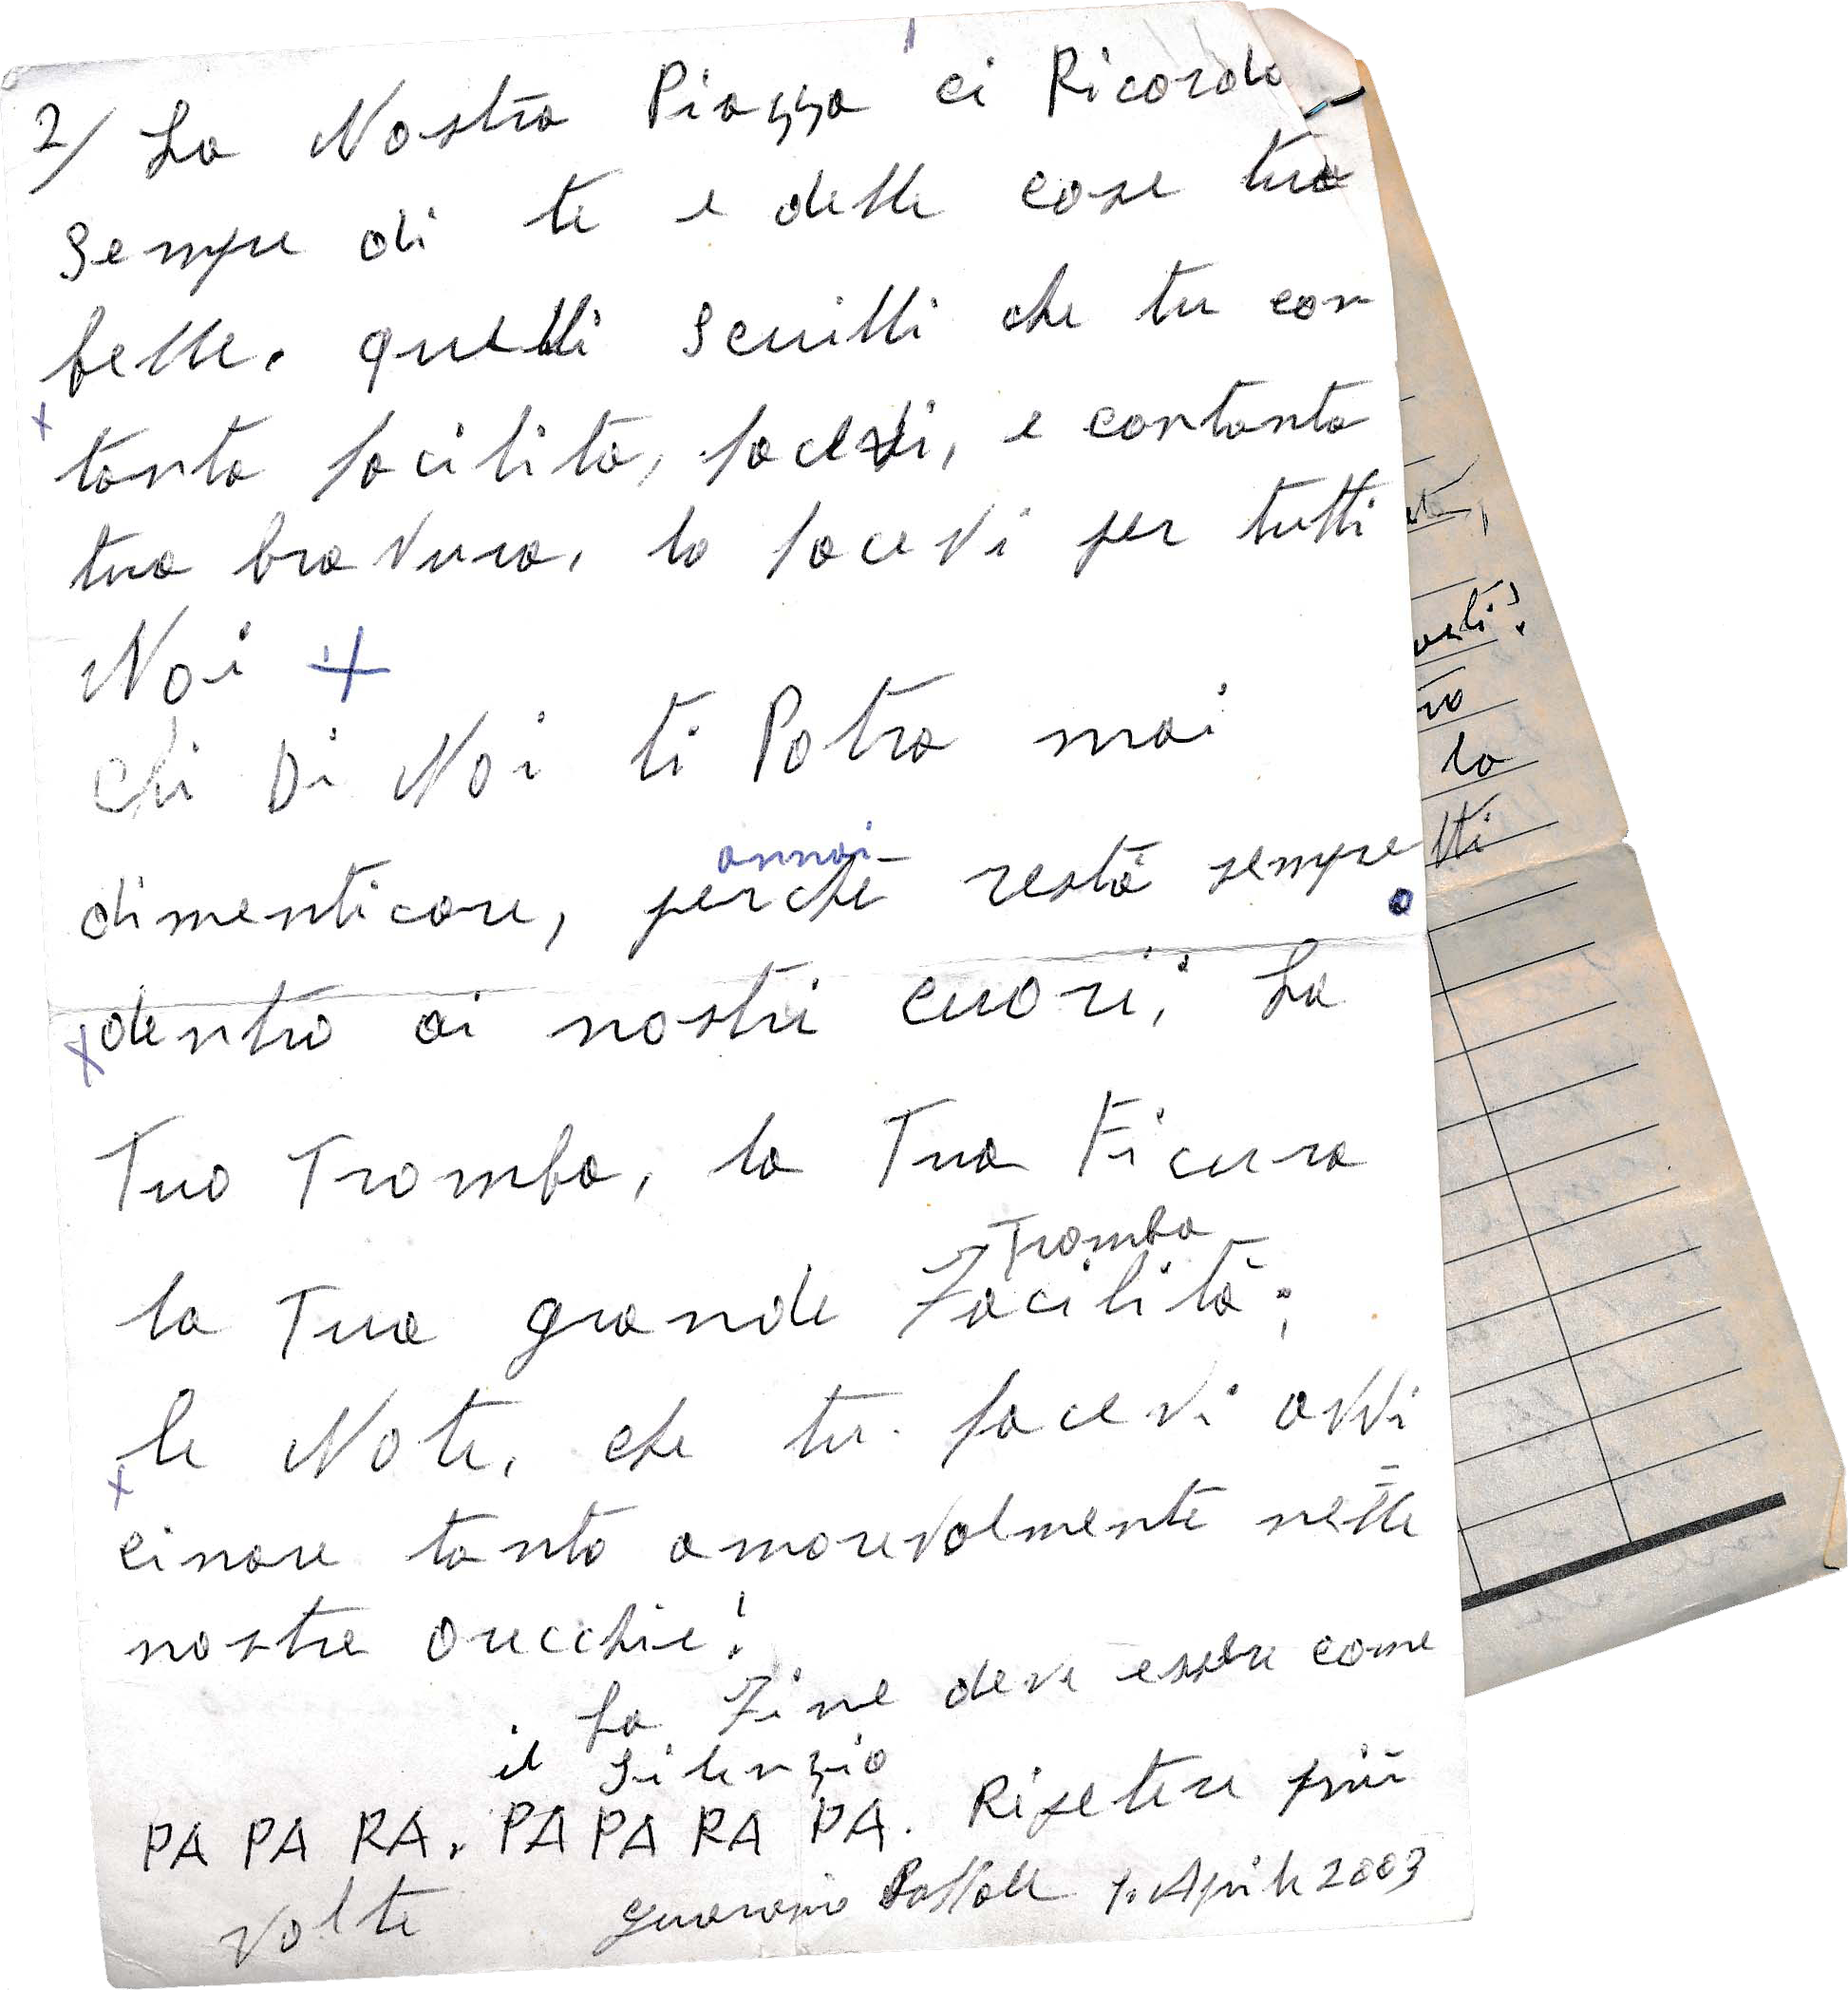 2/ La Nostra Piazza ci Ricorda
sempre di te e delle cose tue
belle. quelli scuilli che tu con
tanta facilità, facevi, e contanta
tua bravura, lo facevi per tutti
Noi +
chi Di Noi ti Potra mai
annoi
dimenticare, perchè restà sempre
dentro ai nostri cuori, La
Tua Tromba, la Tua Ficura
Tromba
la Tua grande Facilità;
le Note, che tu. facevi avvi
cinare tanto amorevolmente nelle
nostre orecchie!
La Fine deve essere come
il silenzio
PA PA RA. PA PA RA PA. Ripetere più
volte
1. Aprile 2003
lo
tti